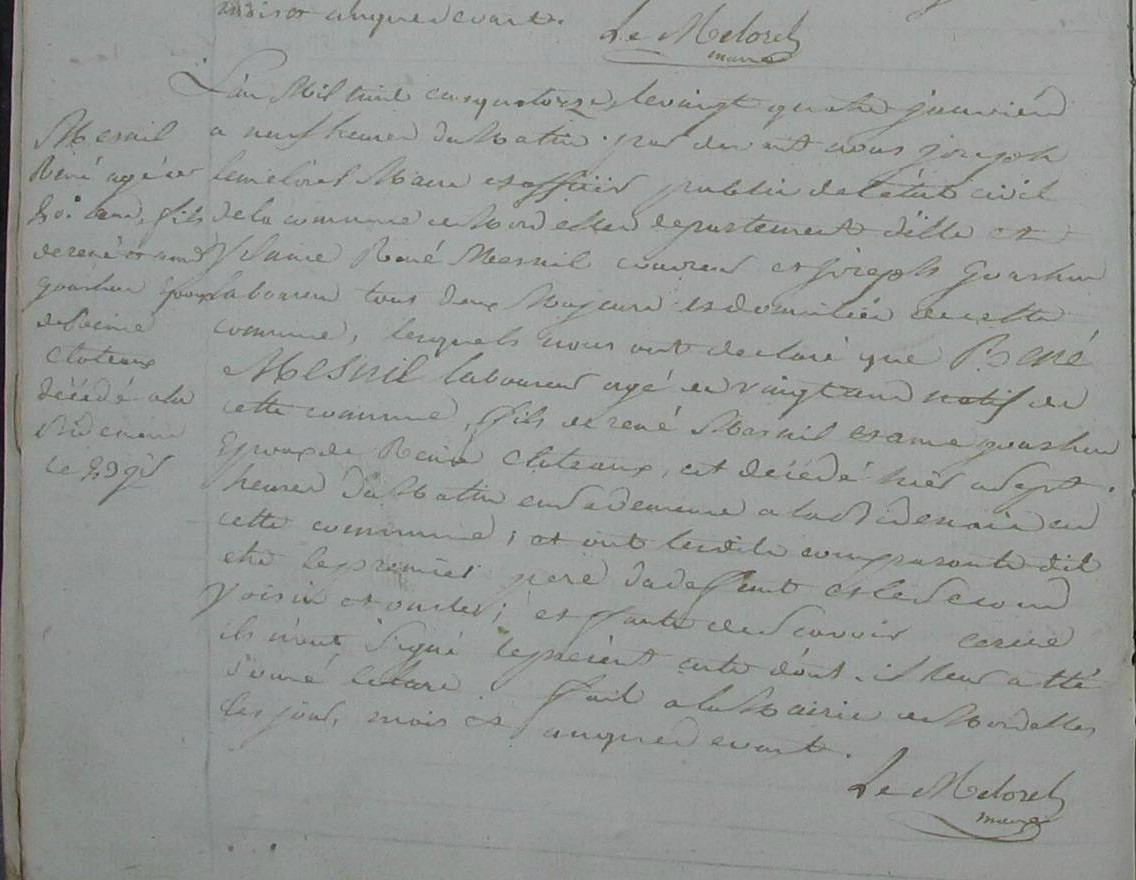 mois et an que devant.
Le Melorel
maire
L'an Mil huit cens quatorze, le vingt quatre janvier
a neuf heures du Matin. par devant nous joseph
lemelorel Maire et officier public de l'état civil
de la commune de Mordelles departement d'ille et
Vilaine René Mesnil couvreur et joseph Gouchu
laboureur tous deux Majeurs et domiciliés de cette
commune, lesquels nous ont declaré que René
Mesnil laboureur agé de vingt ans natif de
cette commune, fils de rené Mesnil et
Epoux de Reine Cloteaux, est décédé hier a sept
heures du Matin en sa demeure a la en
cette commune; et ont lesdits comparants dit
etre le premier pere du deffunt et le second
Voisin et oncle; et faute de Scavoir ecrire
ils n'ont Signé le present acte dont il leur a été
donné lecture. fait a la Mairie de Mordelles
les jour, mois et an que devant.
Le Melorel
maire
Mesnil
René agé de
ans, fils
de rené et
epoux
de Reine
Cloteaux
décédé a la
le